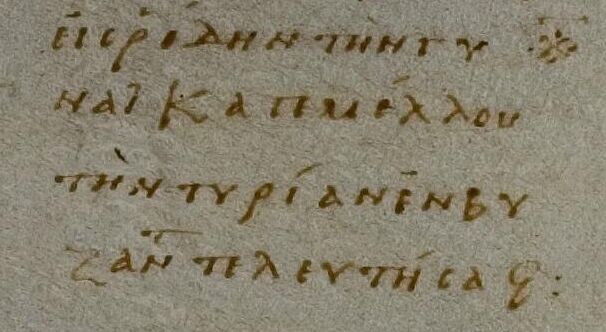 εἰς ῥόδην τὴν γυ
ναῖκα γεμέλλου
τὴν τυρίαν ἐν βυ
ζαντ τελευτήσασ: